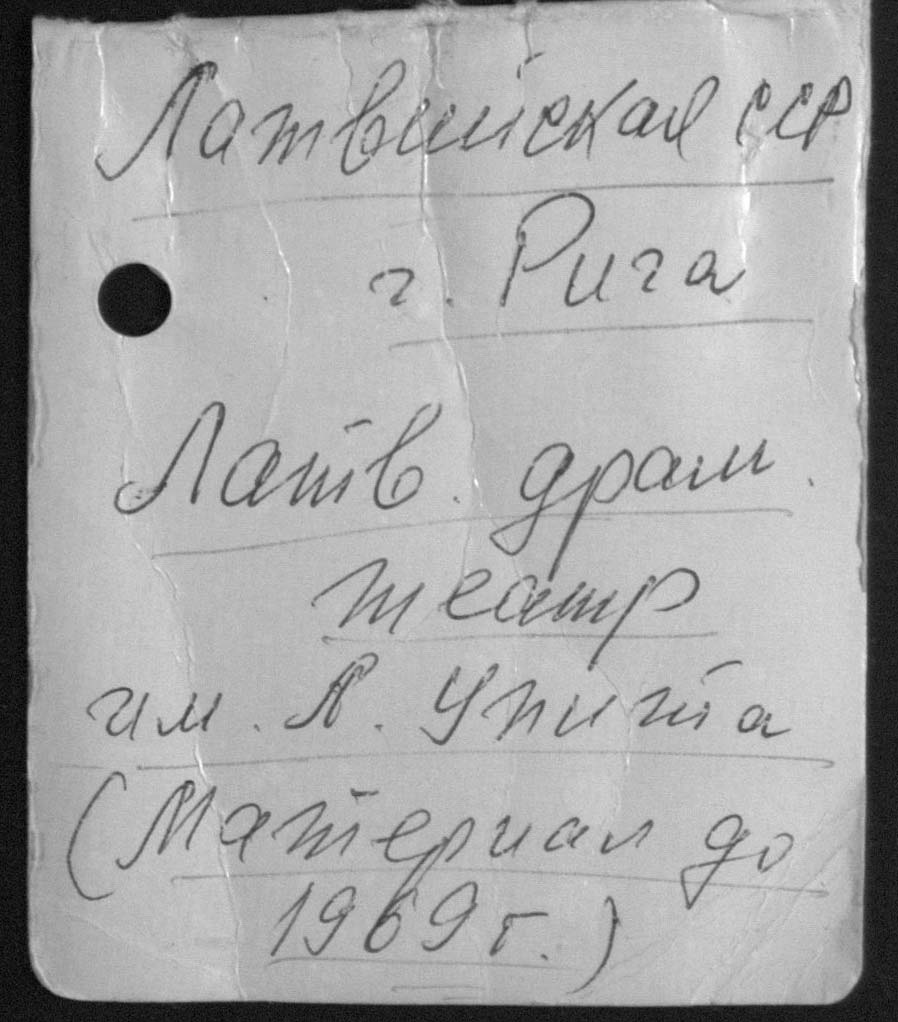 Латвийская ССР
г. Рига
Латв. драм.
театр
им. А. Упита
(Материал до
1969 г.)